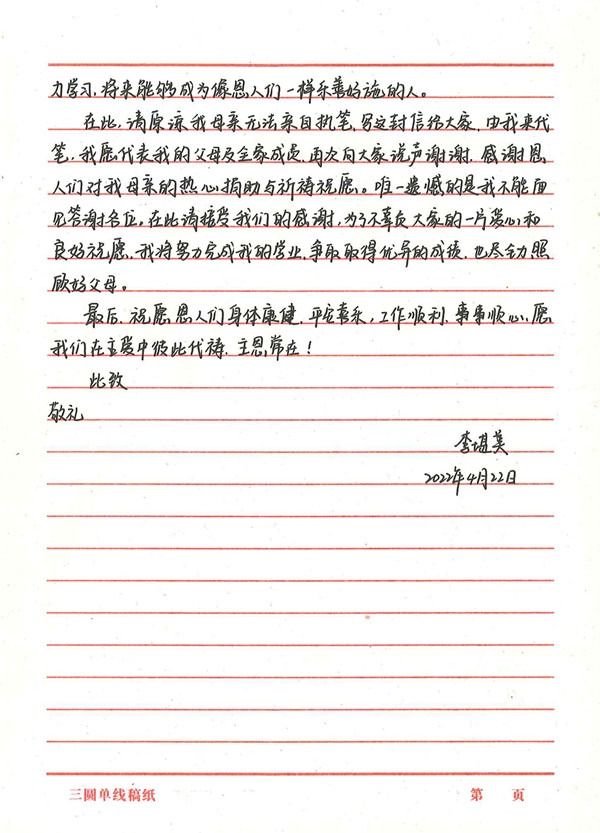 力学习，将来能够成为像恩人们一样乐善好施的人。
在此，请原谅我母亲无法亲自执笔，写这封信给大家，由我来代
笔，我愿代表我的父母及全家成员，再次向大家说声谢谢，感谢恩
人们对我母亲的热心捐助与祈祷祝愿。唯一遗憾的是我不能面
见答谢各位，在此请接受我们的感谢，为了不辜负大家的一片爱心和
良好祝愿，我将努力完成我的学业，争取取得优异的成绩，也尽全力照
顾好父母。
最后，祝愿恩人们身体康健，平安喜乐，工作顺利，事事顺心，愿
我们在主爱中彼此代祷，主恩常在！
此致
敬礼
李堪美
2022年4月22日
三圆单线稿纸 第 页